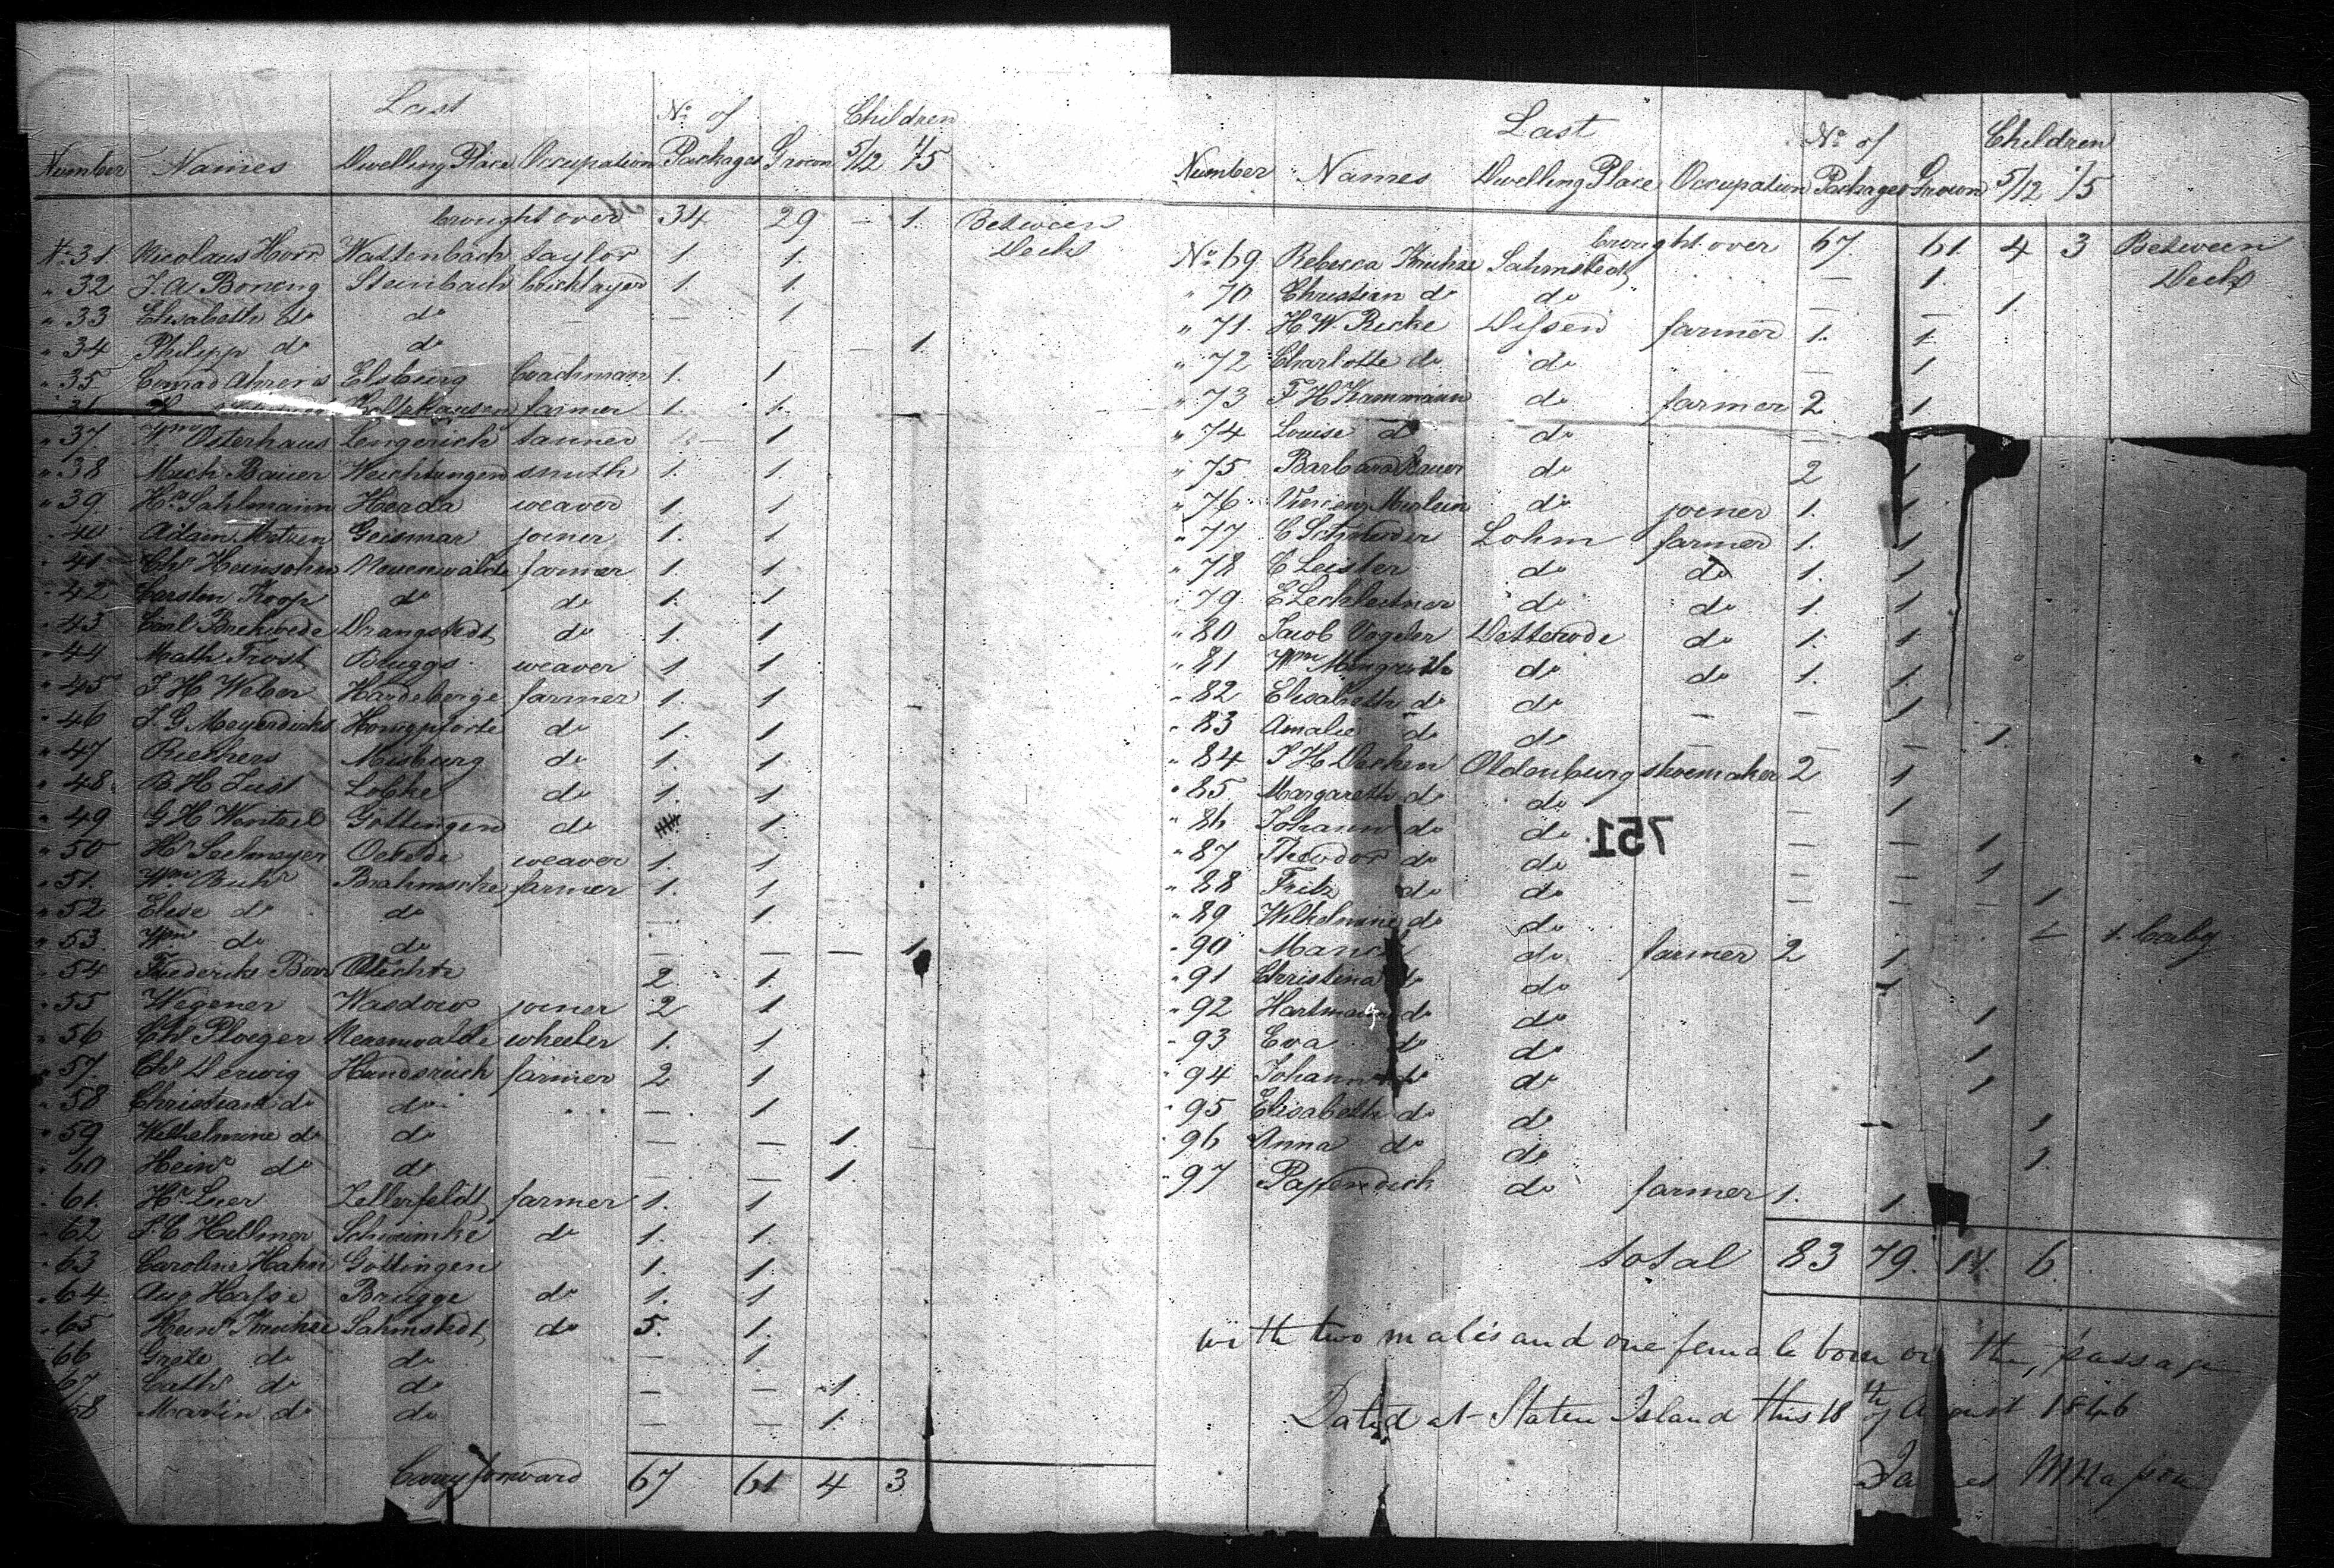 Last No of Children
Number Names Dwelling Place Occupation Packages Grown 5/12 1/5
brought over 34 29 — 1. Between
No 31 Nicolaus Horn Wattenbach taylor 1 1. Deck
" 32 J. A. Boneng Steinbach bricklayer 1. 1.
" 33 Elisabeth do do — — 1
" 34 Philipp do do — 1.
" 35 Conrad Ahrens Elsburg Coachman 1. 1
farmer 1. 1.
" 37. Wm Osterhaus Lengerich tanner — 1
" 38 Mich Bauer smith 1. 1.
" 39 Hr. Sahlmann Herda weaver 1 1
" 40 Adam Geismar joiner 1. 1
" 41 Chr Heinsohn farmer 1. 1
" 42 Carsten Koop do do 1. 1
" 43 Carl Drangstedt do 1. 1
" 44 Math Frost Bruggs weaver 1 1
" 45 J H Weber farmer 1. 1
" 46 J. G Meyerdirks Honigpforte do 1. 1
" 47 Misburg do 1. 1.
" 48. B. H. Just do 1. 1
" 49 G H Wentzel Göttingen do 1.
" 50 Hr Seelmeyer Oesede weaver 1. 1
" 51. Wm Buhr Brahmsche farmer 1. 1
" 52 Elise do do — 1
" 53 Wm do do — — — 1
" 54 2. 1.
" 55 Wegener joiner 2 1
" 56 Chr Ploeger wheeler 1. 1
" 57 Chr Derwig farmer 2 1
" 58 Christian do do — 1
" 59 Wilhelmine do do — — 1.
" 60 Heinr do do — — 1.
" 61. Hr Leer Zellerfeldt farmer 1. 1
" 62 Hellmer Schwimke do 1. 1
" 63 Caroline Hahn Göttingen 1. 1.
" 64 Aug Hasse Brügge do 1. 1
" 65 Heinr Kruhze Sahmstedt do 5. 1.
" 66 Grete do do — 1
67 Cath do do — — 1.
68 Martin do do — — 1.
Carry forward 67 61 4 3
Last No of Children
Number Names Dwelling Place Occupation Packages Grown 5/12 1/5
brought over 67 61. 4 3 Between
No 69 Rebecca Kruhze Sahmstedt — 1. Deck
" 70 Christian do do — — 1
" 71. H. W. Ricke Dissen farmer 1. 1
" 72 Charlotte do do — 1
" 73 F H Kammann do farmer 2 1
" 74 Louise do do —
" 75 Barbara Bauer do 2 1
" 76 do joiner 1. 1
" 77 C Schneider Lohm farmer 1. 1
" 78 C Leister do do 1. 1
" 79 E Lechleitner do do 1. 1
" 80 Jacob Vogeler Detterode do 1. 1
" 81 Wm do do 1. 1
" 82 Elisabeth do do — — 1
" 83 Amalie do do — — — 1.
" 84 J H Decken Oldenburg shoemaker 2 1
" 85 Margareth do do — 1
" 86 Johann do do — — 1
" 87 Theodor do do — — 1
" 88 Fritz do do — — — 1
" 89 Wilhelmine do do 1 baby
" 90 do farmer 2 1
" 91 Christina do do 1
" 92 Hartmann do do 1
" 93 Eva do do 1
" 94 Johann do do 1
" 95 Elisabeth do do 1
" 96 Anna do do 1.
" 97 Papendick do farmer 1. 1.
751
total 83 79. 11. 6.
with two males and one female born on the passage
Dated at Staten Island this 18th of August 1846
James